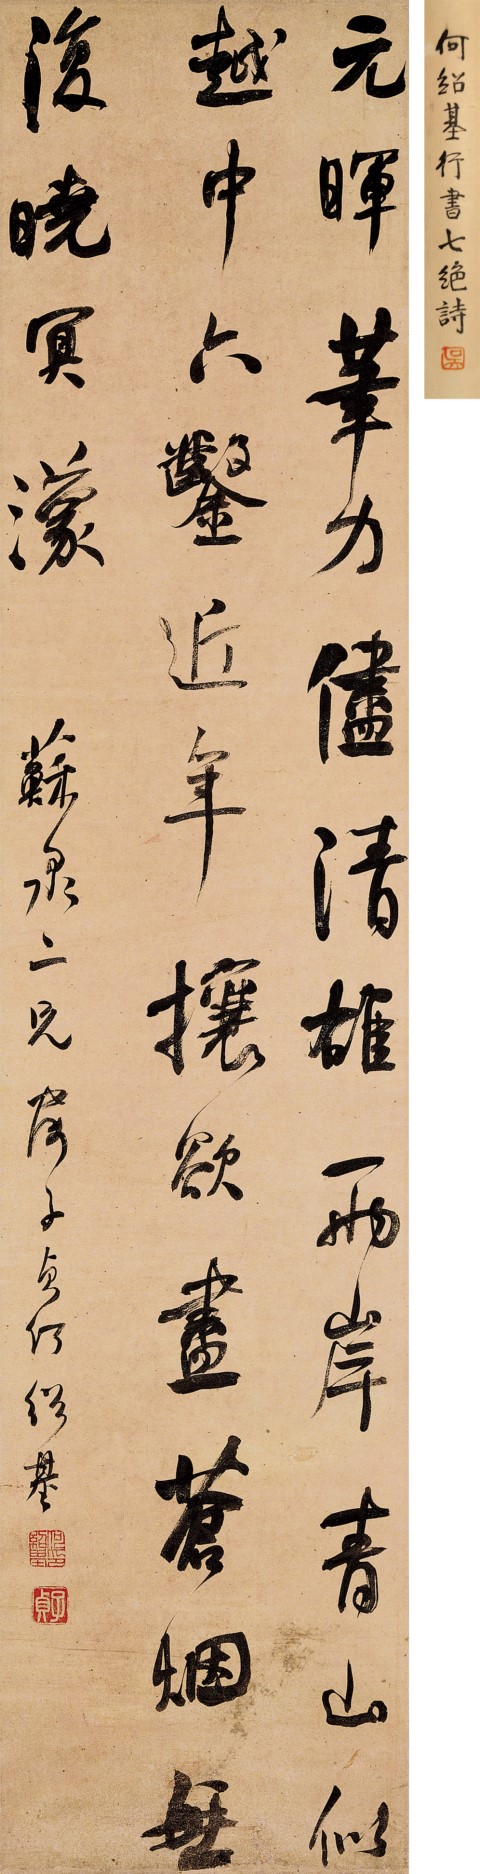 何紹基行書七絕詩
元暉筆力儘清雄兩岸青山似
越中六鑿近年攘欲盡蒼烟無
復曉冥濛
蘇泉二兄屬子貞何紹基
何紹基印
子貞